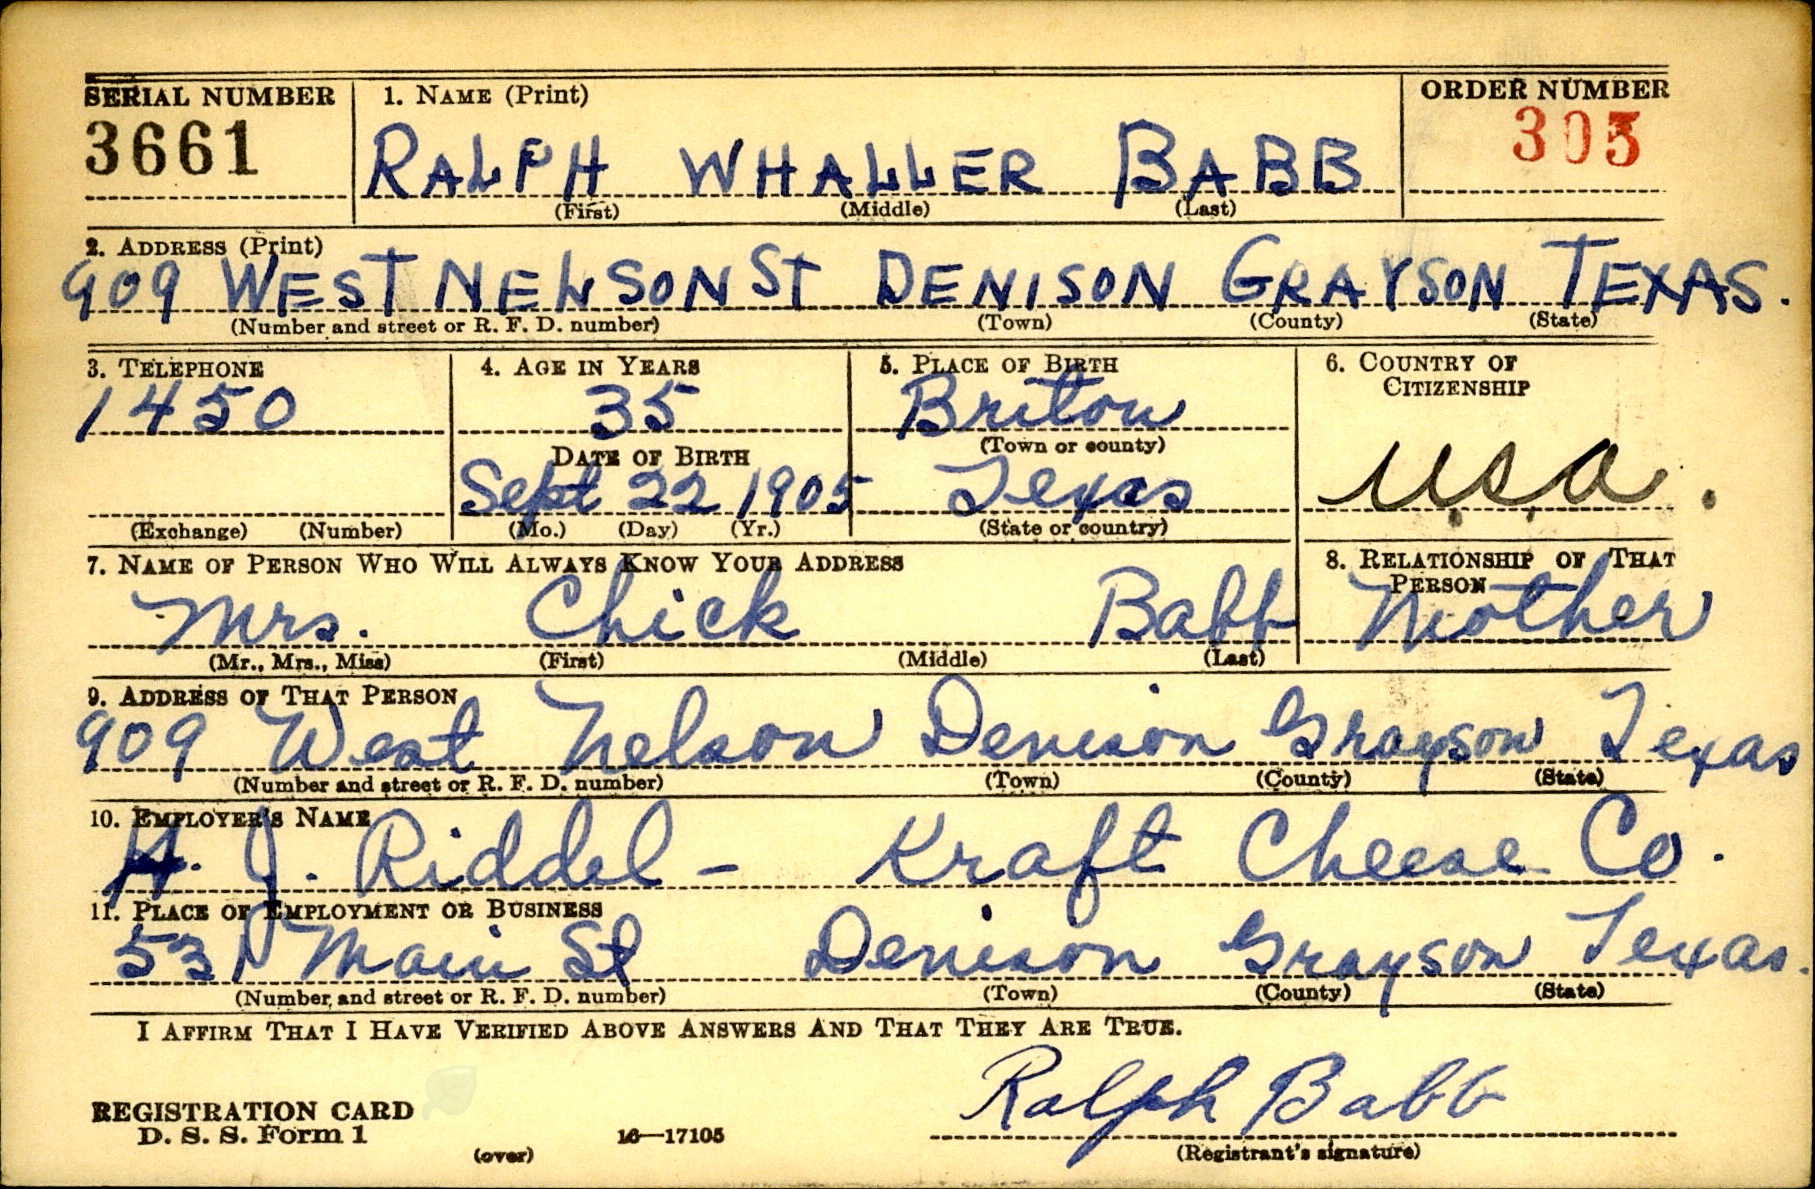 SERIAL NUMBER 1. NAME (Print) ORDER NUMBER
3661 RALPH WHALLER BABB 305
(First) (Middle) (Last)
2. ADDRESS (Print)
909 WEST NELSON ST DENISON GRAYSON TEXAS.
(Number and street or R. F. D. number) (Town) (County) (State)
3. TELEPHONE 4. AGE IN YEARS 5. PLACE OF BIRTH 6. COUNTRY OF CITIZENSHIP
1450 35 Briton
DATE OF BIRTH (Town or county)
Sept 22 1905 Texas U.S.A.
(Exchange) (Number) (Mo.) (Day) (Yr.) (State or country)
7. NAME OF PERSON WHO WILL ALWAYS KNOW YOUR ADDRESS 8. RELATIONSHIP OF THAT PERSON
Mrs. Chick Babb Mother
(Mr., Mrs., Miss) (First) (Middle) (Last)
9. ADDRESS OF THAT PERSON
909 West Nelson Denison Grayson Texas
(Number and street or R. F. D. number) (Town) (County) (State)
10. EMPLOYER'S NAME
H. J. Riddel - Kraft Cheese Co.
11. PLACE OF EMPLOYMENT OR BUSINESS
531 Main St Denison Grayson Texas.
(Number and street or R. F. D. number) (Town) (County) (State)
I AFFIRM THAT I HAVE VERIFIED ABOVE ANSWERS AND THAT THEY ARE TRUE.
Ralph Babb
REGISTRATION CARD
D. S. S. Form 1 16—17105
(over) (Registrant's signature)